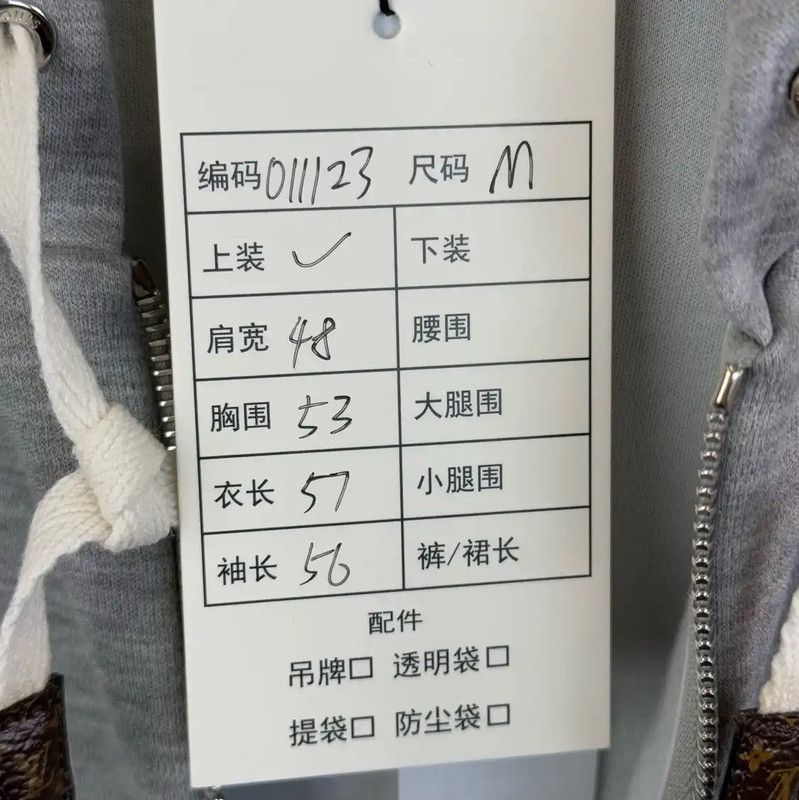 编码 011123 尺码 M
上装 ✓ 下装
肩宽 48 腰围
胸围 53 大腿围
衣长 57 小腿围
袖长 56 裤/裙长
配件
吊牌□ 透明袋□
提袋□ 防尘袋□